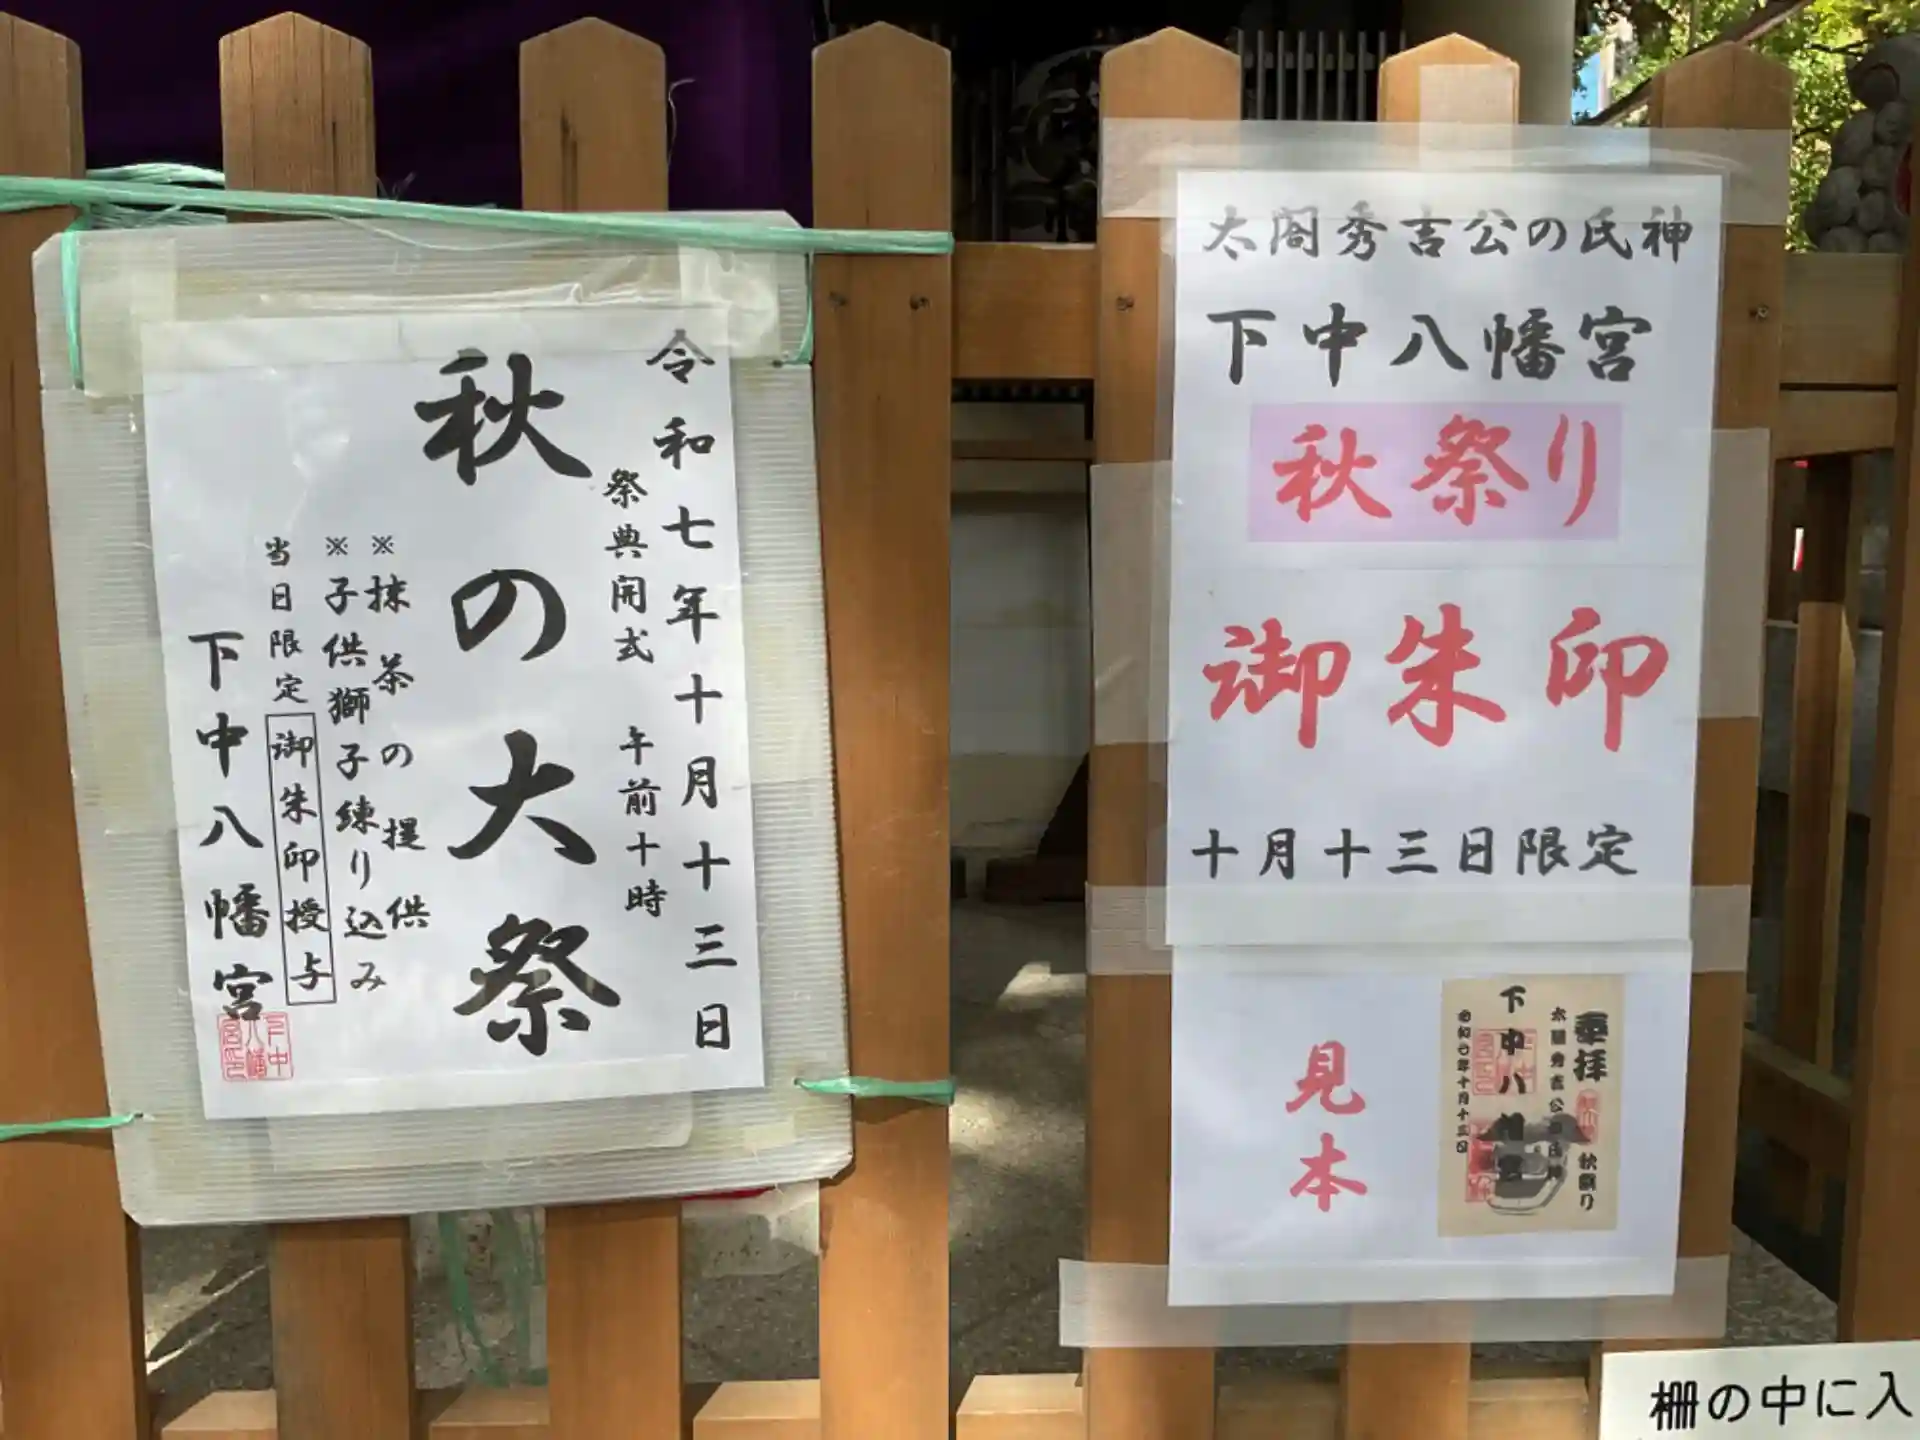 令和七年十月十三日
祭典開式　午前十時
秋の大祭
※抹茶の提供
※子供獅子練り込み
当日限定御朱印授与
下中八幡宮
太閤秀吉公の氏神
下中八幡宮
秋祭り
御朱印
十月十三日限定
見本
奉拝
秋祭り
下中八幡宮
令和七年十月十三日
柵の中に入